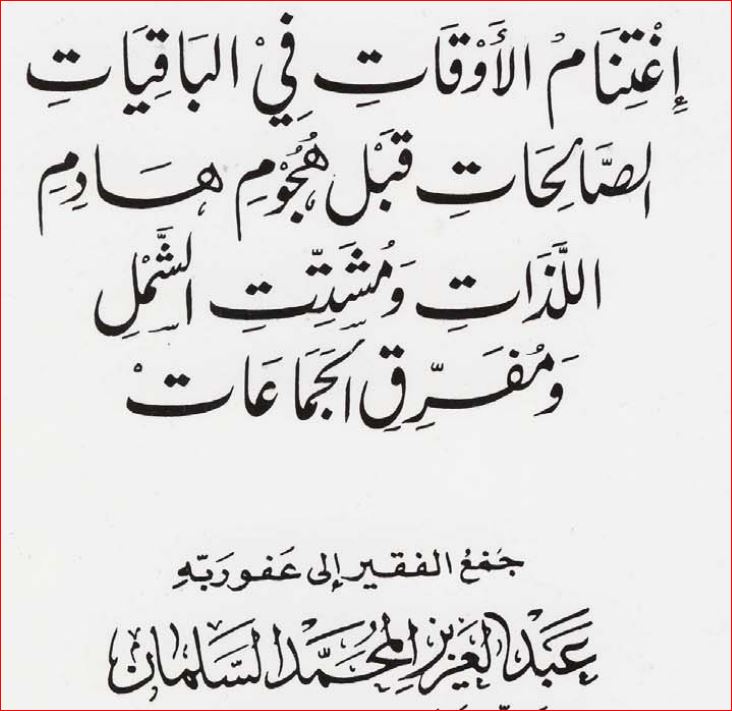 إِغْتِنَامْ الأَوْقَاتِ فِيْ البَاقِيَاتِ
الصَّالِحَاتِ قَبْل هُجُوْمِ هَادِمِ
اللَّذَاتِ وَمُشَتِّتِ الشَّمْلِ
وَمُفَرِّقِ الجَمَاعَاتْ
جَمْعُ الفقير إلى عَفو رَبِّهِ
عَبْد العَزيز المُحَمَّد السَّلمان